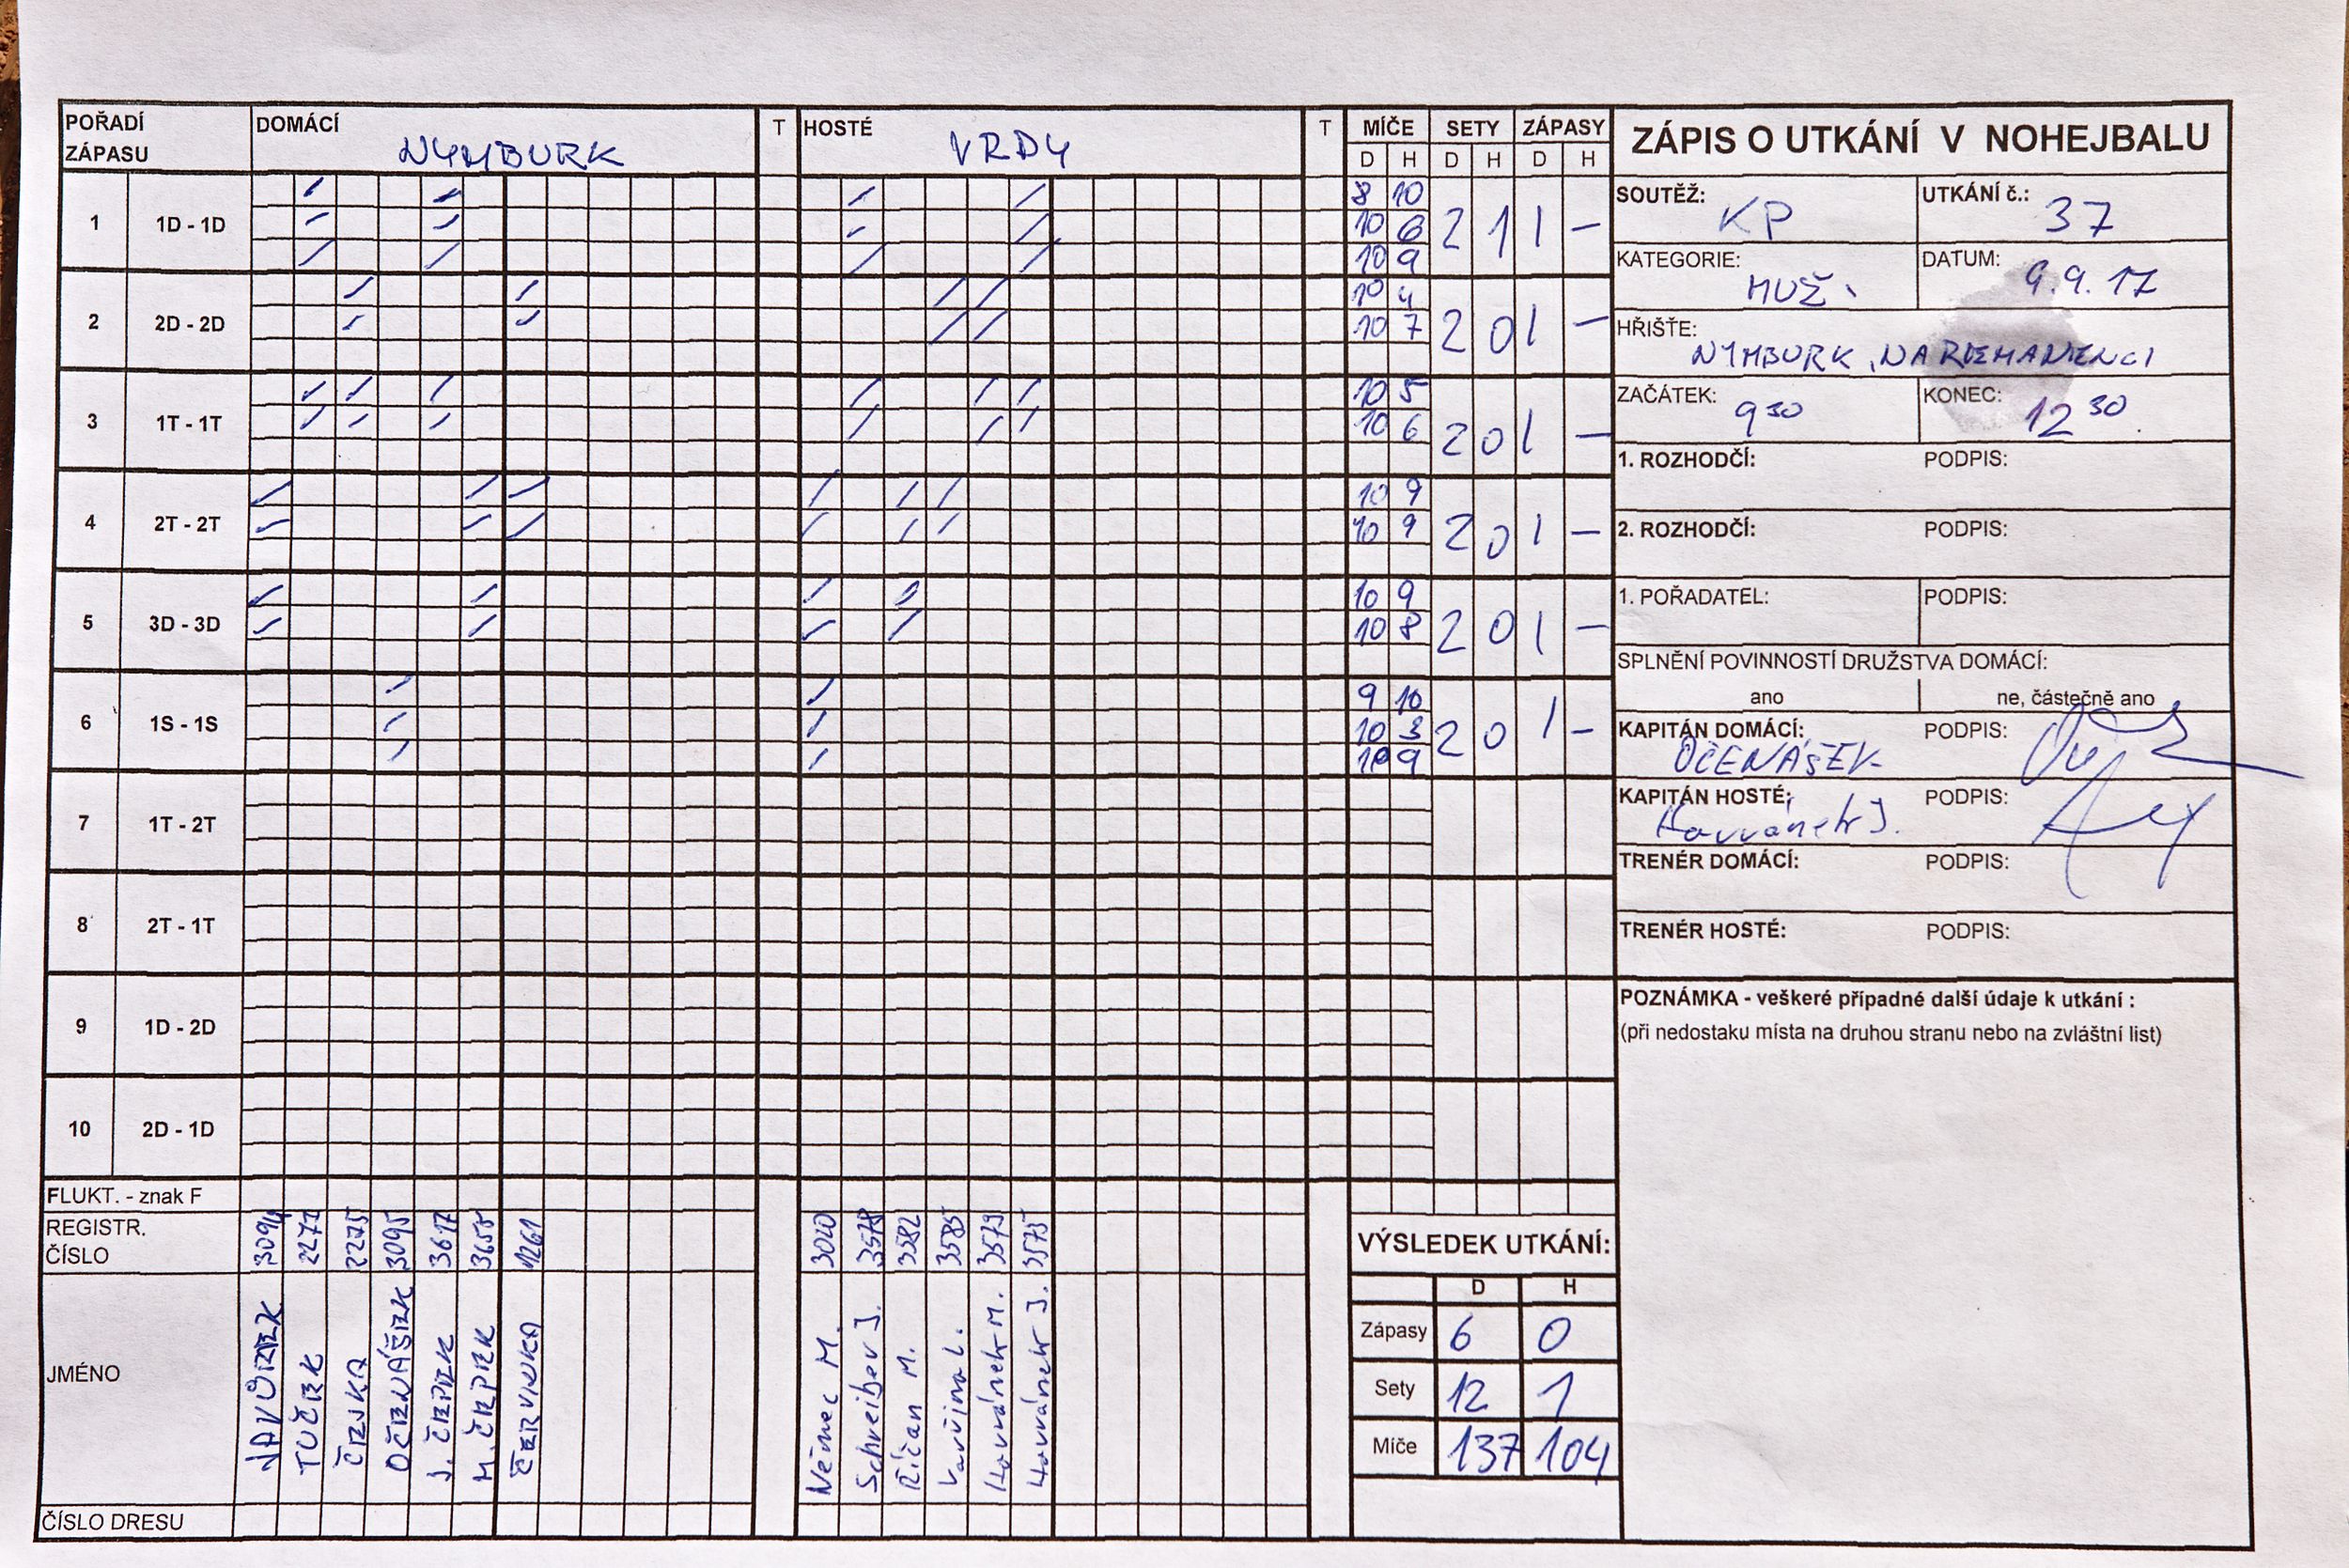 POŘADÍ ZÁPASU DOMÁCÍ NYMBURK T HOSTÉ VRDY T MÍČE SETY ZÁPASY
D H D H D H
ZÁPIS O UTKÁNÍ V NOHEJBALU
1 1D - 1D 8 10 2 1 1 –
10 6
10 9
2 2D - 2D 10 4 2 0 1 –
10 7
3 1T - 1T 10 5 2 0 1 –
10 6
4 2T - 2T 10 9 2 0 1 –
10 9
5 3D - 3D 10 9 2 0 1 –
10 8
6 1S - 1S 9 10 2 0 1 –
10 3
10 9
7 1T - 2T
8 2T - 1T
9 1D - 2D
10 2D - 1D
FLUKT. - znak F
REGISTR. ČÍSLO 3094 2277 2275 3095 3617 3655 1261 3020 3578 3582 3585 3579 3575
JMÉNO JAVŮREK TUČEK ČEJKA OČENÁŠEK J. ČEPEK M. ČEPEK ČERVINKA Němec M. Schreiber J. Říčan M. Vavřina L. Havránek M. Havránek J.
ČÍSLO DRESU
SOUTĚŽ: KP UTKÁNÍ č.: 37
KATEGORIE: MUŽI DATUM: 9.9.17
HŘIŠTĚ: NYMBURK,
ZAČÁTEK: 9 30 KONEC: 12 30
1. ROZHODČÍ: PODPIS:
2. ROZHODČÍ: PODPIS:
1. POŘADATEL: PODPIS:
SPLNĚNÍ POVINNOSTÍ DRUŽSTVA DOMÁCÍ:
ano ne, částečně ano
KAPITÁN DOMÁCÍ: OČENÁŠEK PODPIS:
KAPITÁN HOSTÉ: Havránek J. PODPIS:
TRENÉR DOMÁCÍ: PODPIS:
TRENÉR HOSTÉ: PODPIS:
POZNÁMKA - veškeré případné další údaje k utkání :
(při nedostaku místa na druhou stranu nebo na zvláštní list)
VÝSLEDEK UTKÁNÍ:
D H
Zápasy 6 0
Sety 12 1
Míče 137 104